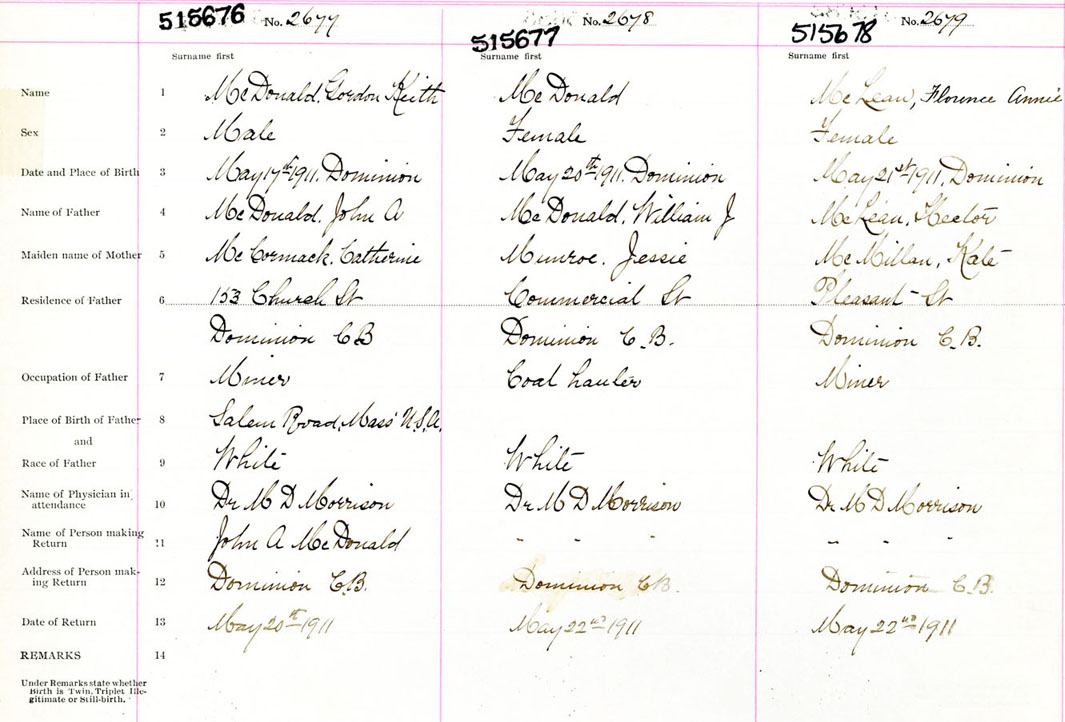 515676 No. 2677 515677 No. 2678 515678 No. 2679
Surname first Surname first Surname first
Name 1 McDonald, Gordon Keith McDonald McLean, Florence Annie
Sex 2 Male Female Female
Date and Place of Birth 3 May 17th 1911. Dominion May 20th 1911. Dominion May 21st 1911, Dominion
Name of Father 4 McDonald, John A McDonald, William J McLean, Hector
Maiden name of Mother 5 McCormack, Catherine Munroe, Jessie McMillan, Kate
Residence of Father 6 153 Church St Commercial St Pleasant St
Dominion C.B Dominion C.B. Dominion C.B.
Occupation of Father 7 Miner Coal hauler Miner
Place of Birth of Father 8 Salem Road, Mass U.S.A.
and
Race of Father 9 White White White
Name of Physician in
attendance 10 Dr M D Morrison Dr M D Morrison Dr M D Morrison
Name of Person making
Return 11 John A McDonald - - - - - -
Address of Person mak-
ing Return 12 Dominion C.B. Dominion C.B. Dominion C.B.
Date of Return 13 May 20th 1911 May 22nd 1911 May 22nd 1911
REMARKS 14
Under Remarks state whether
Birth is Twin, Triplet Ille-
gitimate or Still-birth.